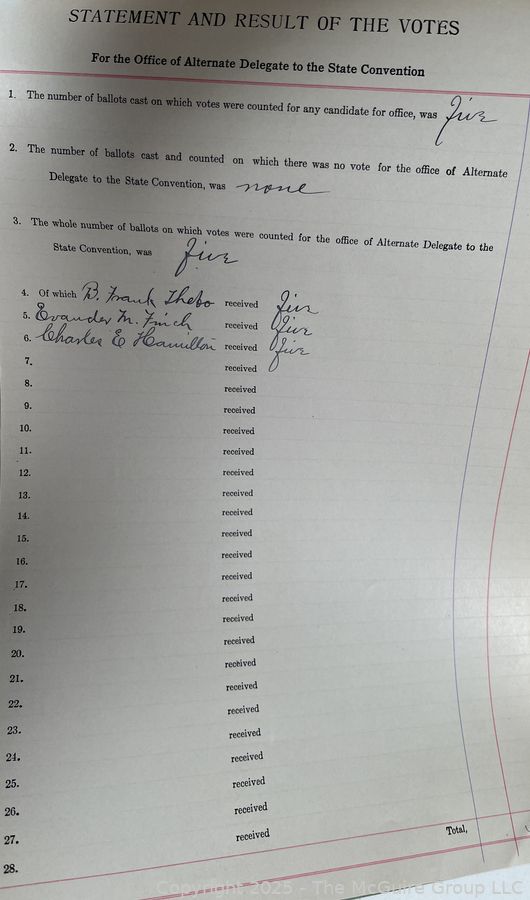 STATEMENT AND RESULT OF THE VOTES
For the Office of Alternate Delegate to the State Convention
1. The number of ballots cast on which votes were counted for any candidate for office, was five
2. The number of ballots cast and counted on which there was no vote for the office of Alternate
Delegate to the State Convention, was none
3. The whole number of ballots on which votes were counted for the office of Alternate Delegate to the
State Convention, was five
4. Of which B. Frank Thebo received five
5. Evander M. Finch received five
6. Charles E Hamilton received five
7. received
8. received
9. received
10. received
11. received
12. received
13. received
14. received
15. received
16. received
17. received
18. received
19. received
20. received
21. received
22. received
23. received
24. received
25. received
26. received
27. received Total,
28.
Copyright 2025 - The McGuire Group LLC